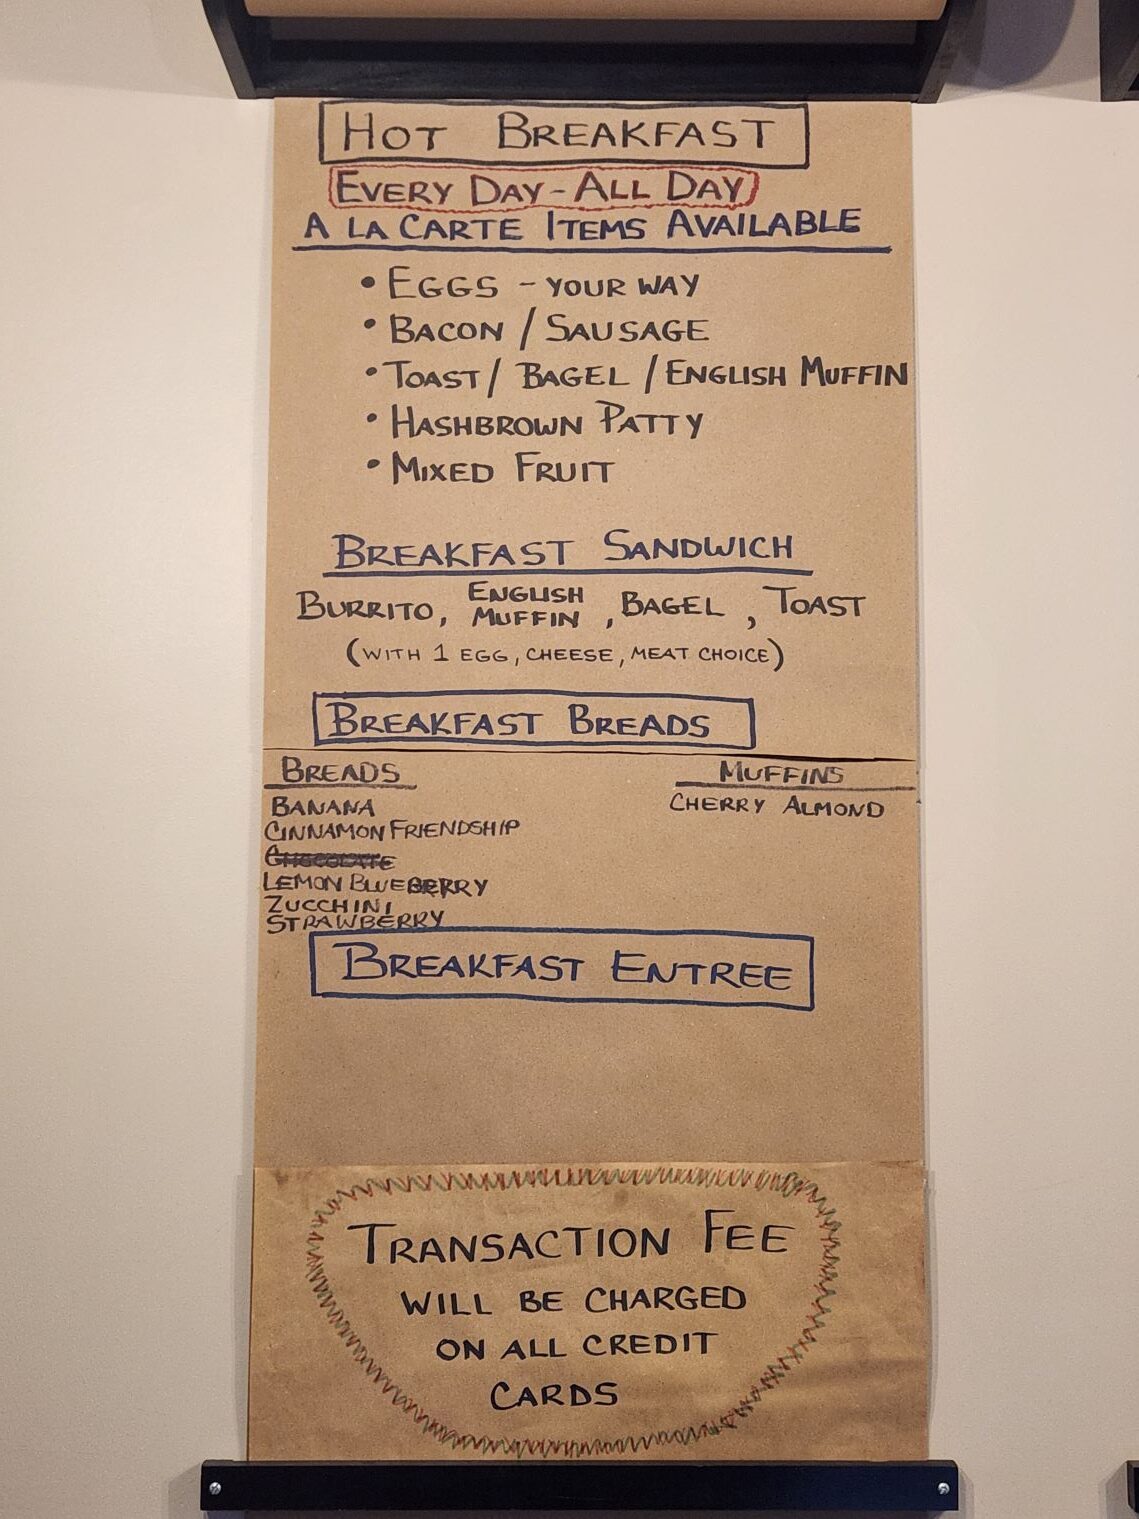 HOT BREAKFAST
EVERY DAY - ALL DAY
A LA CARTE ITEMS AVAILABLE
• EGGS - YOUR WAY
• BACON / SAUSAGE
• TOAST / BAGEL / ENGLISH MUFFIN
• HASHBROWN PATTY
• MIXED FRUIT
BREAKFAST SANDWICH
BURRITO, ENGLISH MUFFIN, BAGEL, TOAST
(WITH 1 EGG, CHEESE, MEAT CHOICE)
BREAKFAST BREADS
BREADS
BANANA
CINNAMON FRIENDSHIP
CHOCOLATE
LEMON BLUEBERRY
ZUCCHINI
STRAWBERRY
MUFFINS
CHERRY ALMOND
BREAKFAST ENTREE
TRANSACTION FEE
WILL BE CHARGED
ON ALL CREDIT
CARDS